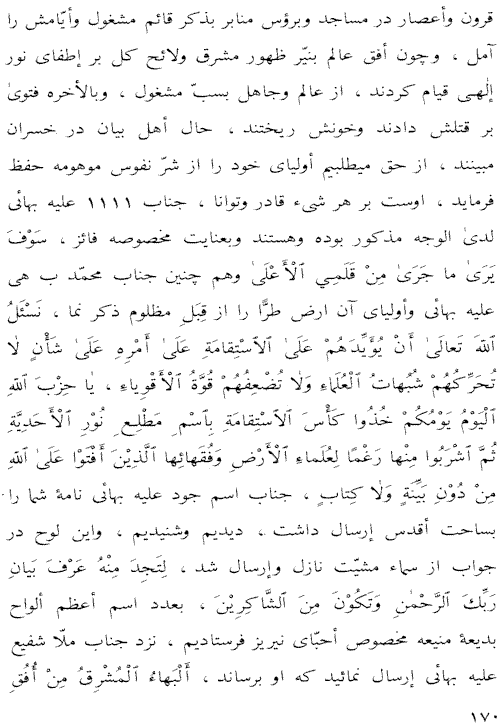 قرون وأعصار در مساجد وبرؤس منابر بذكر قائم مشغول وأيّامش را
آمل ، وچون أفق عالم بنيّر ظهور مشرق ولائح كل بر إطفاى نور
إلٰهى قيام كردند ، از عالم وجاهل بسبّ مشغول ، وبالأخره فتوىٰ
بر قتلش دادند وخونش ريختند ، حال أهل بيان در خسران
مبينند ، از حق ميطلبيم أولياى خود را از شرّ نفوس موهومه حفظ
فرمايد ، اوست بر هر شىء قادر وتوانا ، جناب ١١١١ عليه بهائى
لدىٰ الوجه مذكور بوده وهستند وبعنايت مخصوصه فائز ، سَوْفَ
يَرَىٰ ما جَرَىٰ مِنْ قَلَمِي ٱلْأَعْلَىٰ وهم چنين جناب محمّد ب هى
عليه بهائى وأولياى آن ارض طرًّا را از قِبَلِ مظلوم ذكر نما ، نَسْئَلُ
ٱللّٰهَ تَعالَىٰ أَنْ يُؤَيِّدَهُمْ عَلَىٰ ٱلاسْتِقامَةِ عَلَىٰ أَمْرِهِ عَلَىٰ شَأْنٍ لٰا
تُحَرِّكُهُمْ شُبُهاتُ ٱلْعُلَماءِ وَلٰا تُضْعِفُهُمْ قُوَّةُ ٱلْأَقْوِياءِ ، يٰا حِزْبَ ٱللّٰهِ
ٱلْيَوْمُ يَوْمُكُمْ خُذُوا كَأْسَ ٱلاسْتِقامَةِ بِٱسْمِ مَطْلِعِ نُوْرِ ٱلْأَحَدِيَّةِ
ثُمَّ ٱشْرَبُوا مِنْها رَغْمًا لِعُلَماءِ ٱلْأَرْضِ وَفُقَهائِها ٱلَّذِيْنَ أَفْتَوْا عَلَىٰ ٱللّٰهِ
مِنْ دُوْنِ بَيِّنَةٍ وَلٰا كِتابٍ ، جناب اسم جود عليه بهائى نامهٔ شما را
بساحت أقدس إرسال داشت ، ديديم وشنيديم ، واين لوح در
جواب از سماء مشيّت نازل وإرسال شد ، لِتَجِدَ مِنْهُ عَرْفَ بَيانِ
رَبِّكَ ٱلرَّحْمٰنِ وَتَكُوْنَ مِنَ ٱلشَّاكِرِيْنَ ، بعدد اسم أعظم ألواح
بديعهٔ منيعه مخصوص أحبّاى نيريز فرستاديم ، نزد جناب ملّا شفيع
عليه بهائى إرسال نمائيد كه او برساند ، أَلْبَهاءُ ٱلْمُشْرِقُ مِنْ أُفُقِ
١٧٠